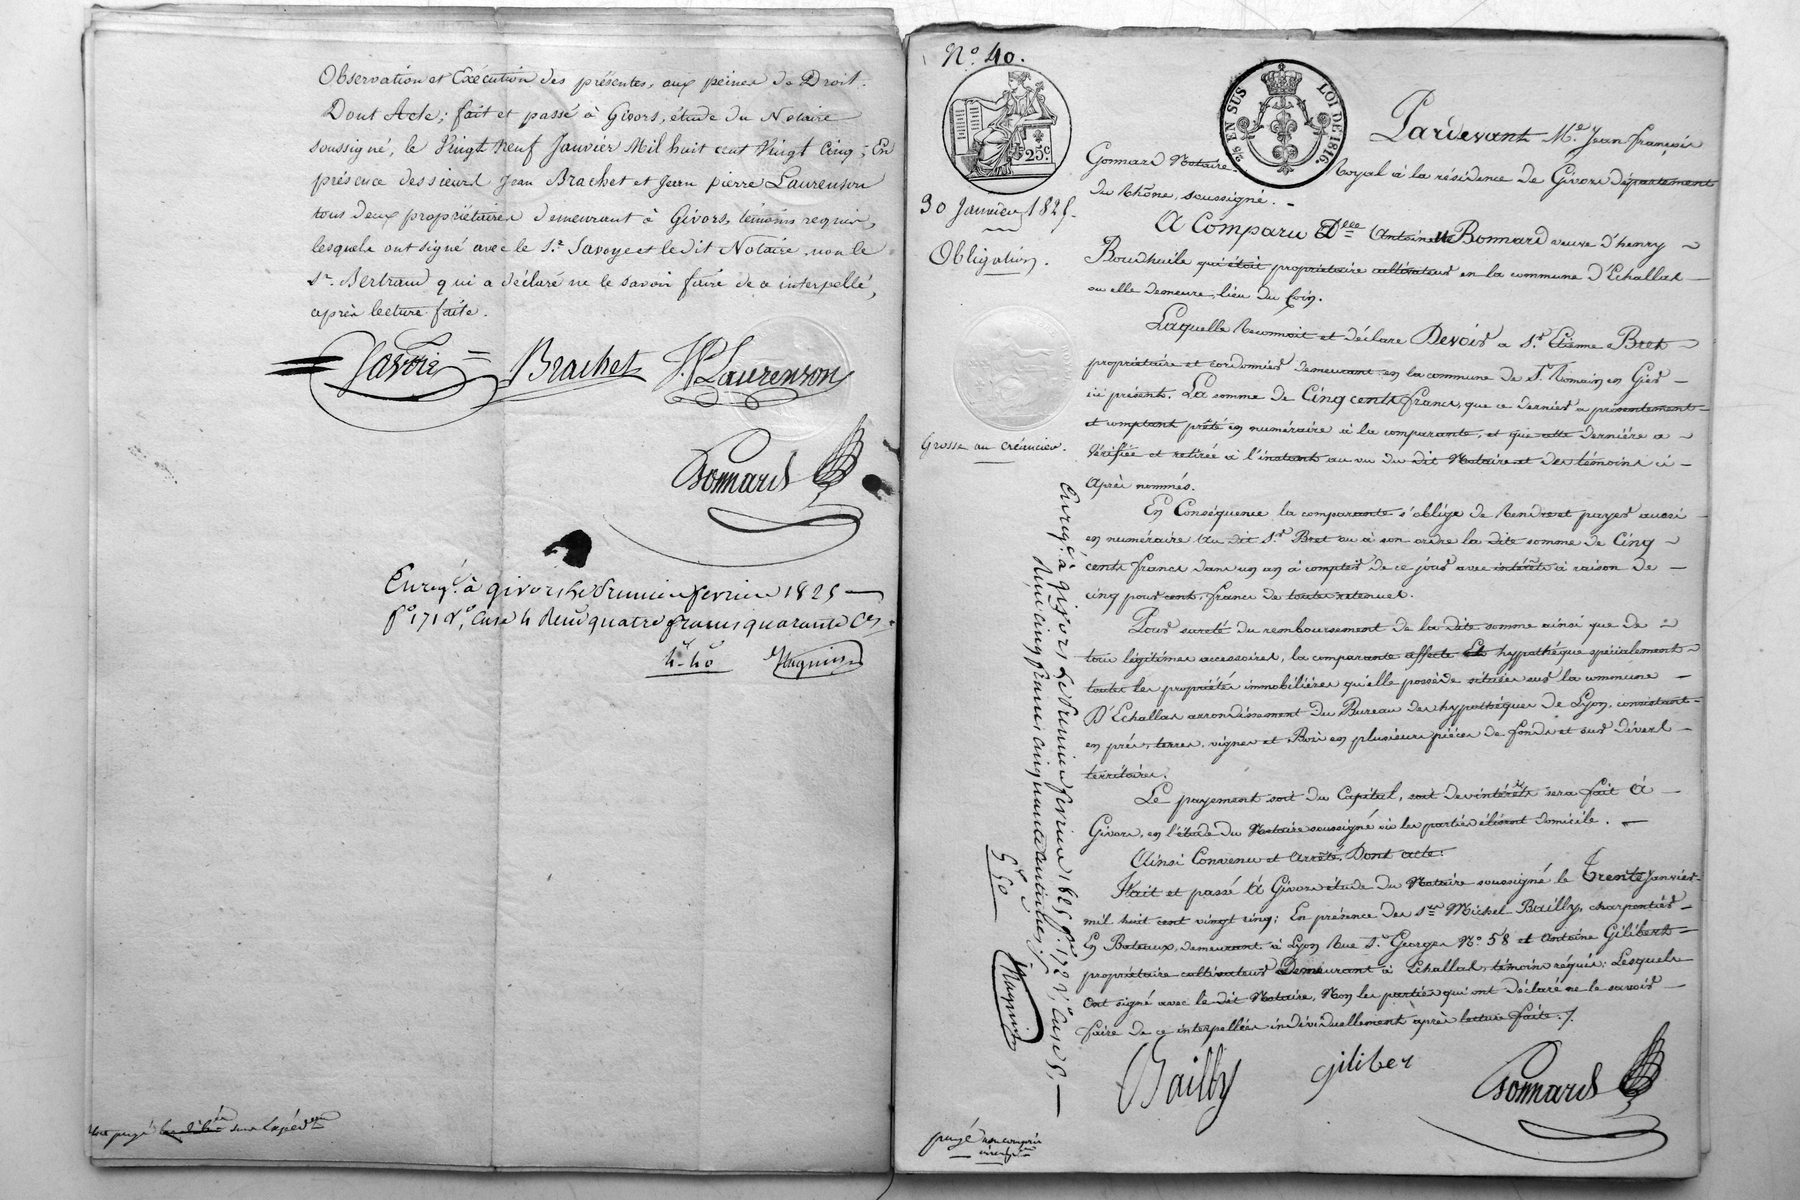 Observation et Exécution des présentes, aux peines de Droit.
Dont Acte; fait et passé à Givors, étude du Notaire
soussigné, le Vingt neuf Janvier Mil huit cent Vingt Cinq; En
présence des sieurs Jean Brachet et Jean pierre Laurenson
tous deux propriétaires demeurant à Givors, témoins requis,
lesquels ont signé avec le Sr. Savoye et le dit Notaire, non le
Sr. Bertrand qui a déclaré ne le savoir faire de ce interpellé,
après lecture faite.
Savoie Brachet JP Laurenson
Gonnard
Enregé. à givors le Premier fevrier 1825
fo. 171 Vo. Case 4 Reçu quatre francs quarante Ces.
4f 40
sur l'expédon
No. 40.
25c.
2/5 EN SUS LOI DE 1816.
30 Janvier 1825.
Obligation.
Grosse au créancier.
Pardevant Me. Jean françois
Gonnard Notaire Royal à la résidence de Givors département
du Rhône, soussigné.
A Comparu Delle Antoinette Bonnard veuve d'henry
Boudhuile qui étoit propriétaire cultivateur en la commune d'Echallas
ou elle demeure, lieu du Coin.
Laquelle Reconnoit et déclare Devoir a Sr. Etienne Bret
propriétaire et cordonnier demeurant en la commune de St. Romain en Gier
ici présent. La somme de Cinq cents francs, que ce dernier a présentement
et comptant prêté en numéraire à la comparante, et que cette dernière a
Vérifiée et retirée à l'instant au vu du dit Notaire et des témoins ci
Après nommés.
En Conséquence la comparante s'oblige de Rendre et payer aussi
en numéraire Au dit Sr. Bret ou à son ordre la dite somme de Cinq
cents francs dans un an à compter de ce jour avec intérêts à raison de
cinq pour cent, franc de toutes retenues.
Pour sureté du remboursement de la dite somme ainsi que de
tous légitimes accessoires, la comparante affecte Et hypothéque spécialement
toutes les propriétés immobilières qu'elle possède situées sur la commune
D'Echallas arrondissement du Bureau des hypothéques de Lyon, consistant
en prés, terres, vignes et Bois en plusieurs pièces de fonds et sur divers
territoires.
Le payement soit du Capital, soit des intérêts sera fait à
Givors, en l'étude du Notaire soussigné où les parties élisent domicile.
Ainsi Convenu et Arrêté. Dont acte.
Fait et passé à Givors étude du Notaire soussigné le Trente Janvier
mil huit cent vingt cinq; En présence des Srs. Michel Bailly, charpentier
En Bateaux, demeurant à Lyon Rue St. Georges No. 58 et Antoine Gilibert
propriétaire cultivateur Demeurant à Echallas, témoins réquis; Lesquels
Ont signé avec le dit Notaire, Non les parties qui ont déclaré ne le savoir
faire de ce interpellées individuellement après lecture faite./.
Bailly giliber Gonnard
Enregé. à givors le Premier fevrier 1825 fo. 172 Vo. Case 5,
Reçu cinq francs cinquante centimes
5f 50
payé non compris